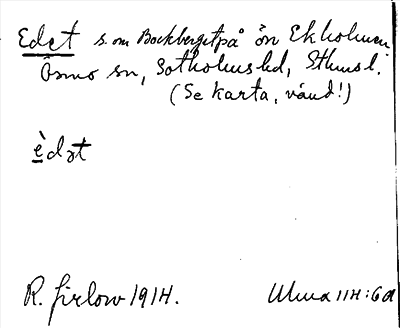 Edet s. om Bockberget på ön Ekholmen
Ösmo sn, Sotholms hd, Sthmsl.
(Se karta, vänd!)
èdət
R. Jirlow 1914.